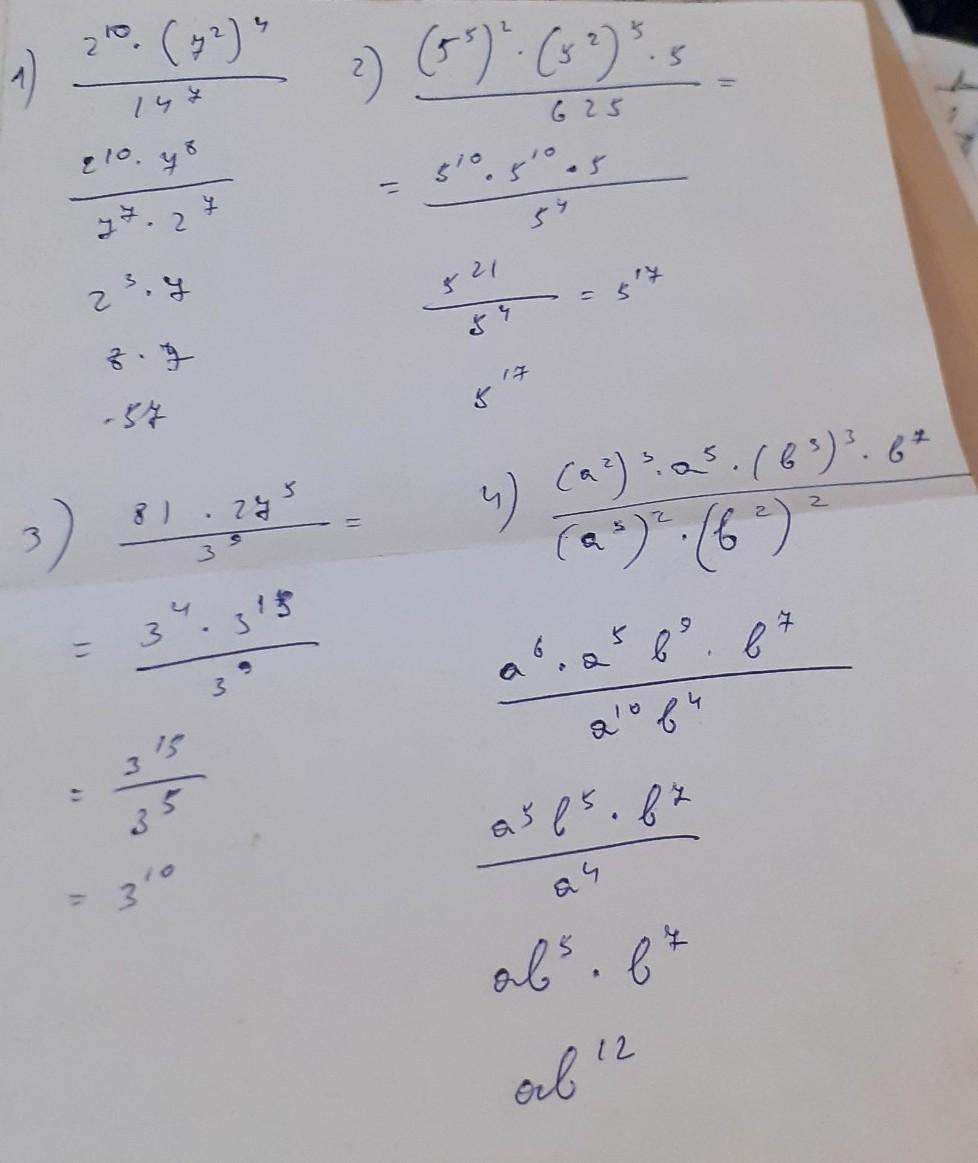 1) (2¹⁰ · (7²)⁴) / 14⁷
(2¹⁰ · 7⁸) / (7⁷ · 2⁷)
2³ · 7
8 · 7
·57
2) ((5⁵)² · (5²)⁵ · 5) / 625 =
= (5¹⁰ · 5¹⁰ · 5) / 5⁴
5²¹ / 5⁴ = 5¹⁷
5¹⁷
3) (81 · 27⁵) / 3⁹ =
= (3⁴ · 3¹⁵) / 3⁹
= 3¹⁵ / 3⁵
= 3¹⁰
4) ((a²)³ · a⁵ · (b³)³ · b⁷) / ((a⁵)² · (b²)²)
(a⁶ · a⁵ b⁹ · b⁷) / (a¹⁰ b⁴)
(a⁵ b⁵ · b⁷) / a⁴
ab⁵ · b⁷
ab¹²